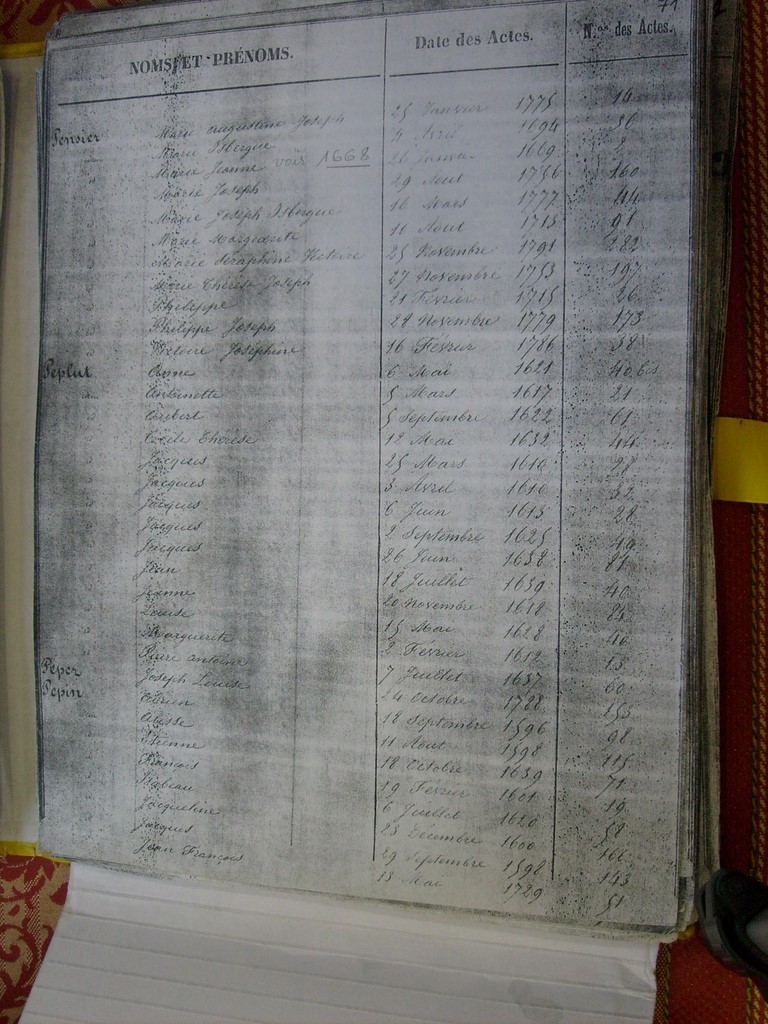 71
NOMS ET PRÉNOMS. Date des Actes. N.os des Actes.
Pensier Marie Augustine Joseph 25 Janvier 1775 14
Marie Isbergue 4 Avril 1694 36
Marie Jeanne voir 1668 26 Janvier 1669
Marie Joseph 29 Aout 1756 160
Marie Joseph Isbergue 16 Mars 1777 44
Marie Marguerite 16 Aout 1715 91
Marie Séraphine Victoire 25 Novembre 1791 182
Marie Thérèse Joseph 27 Novembre 1753 197
Philippe 21 Février 1715 26
Philippe Joseph 28 Novembre 1779 173
Victoire Joséphine 16 Février 1786 38
Peplut Anne 6 Mai 1621 40 bis
Antoinette 5 Mars 1617 21
Aubert 5 Septembre 1622 61
Cecile Therese 12 Mai 1632 44
Jacques 25 Mars 1610
Jacques 3 Avril 1610 32
Jacques 6 Juin 1613 28
Jacques 2 Septembre 1625 49
Jacques 26 Juin 1638
Jean 18 Juillet 1639 40
Jeanne 20 Novembre 1618 84
Louise 15 Mai 1628 40
Marguerite 2 Février 1612 13
Piere antoine 7 Juillet 1637 60
Peper Joseph Louise 24 Octobre 1788 153
Pepin Adrien 18 Septembre 1596 98
Alisse 11 Aout 1598 115
Etienne 18 Octobre 1639 71
François 19 Février 1601 19
Isabeau 6 Juillet 1620 58
Jacqueline 23 Decembre 1600 166
Jacques 29 Septembre 1598 143
Jean François 13 Mai 1729 51